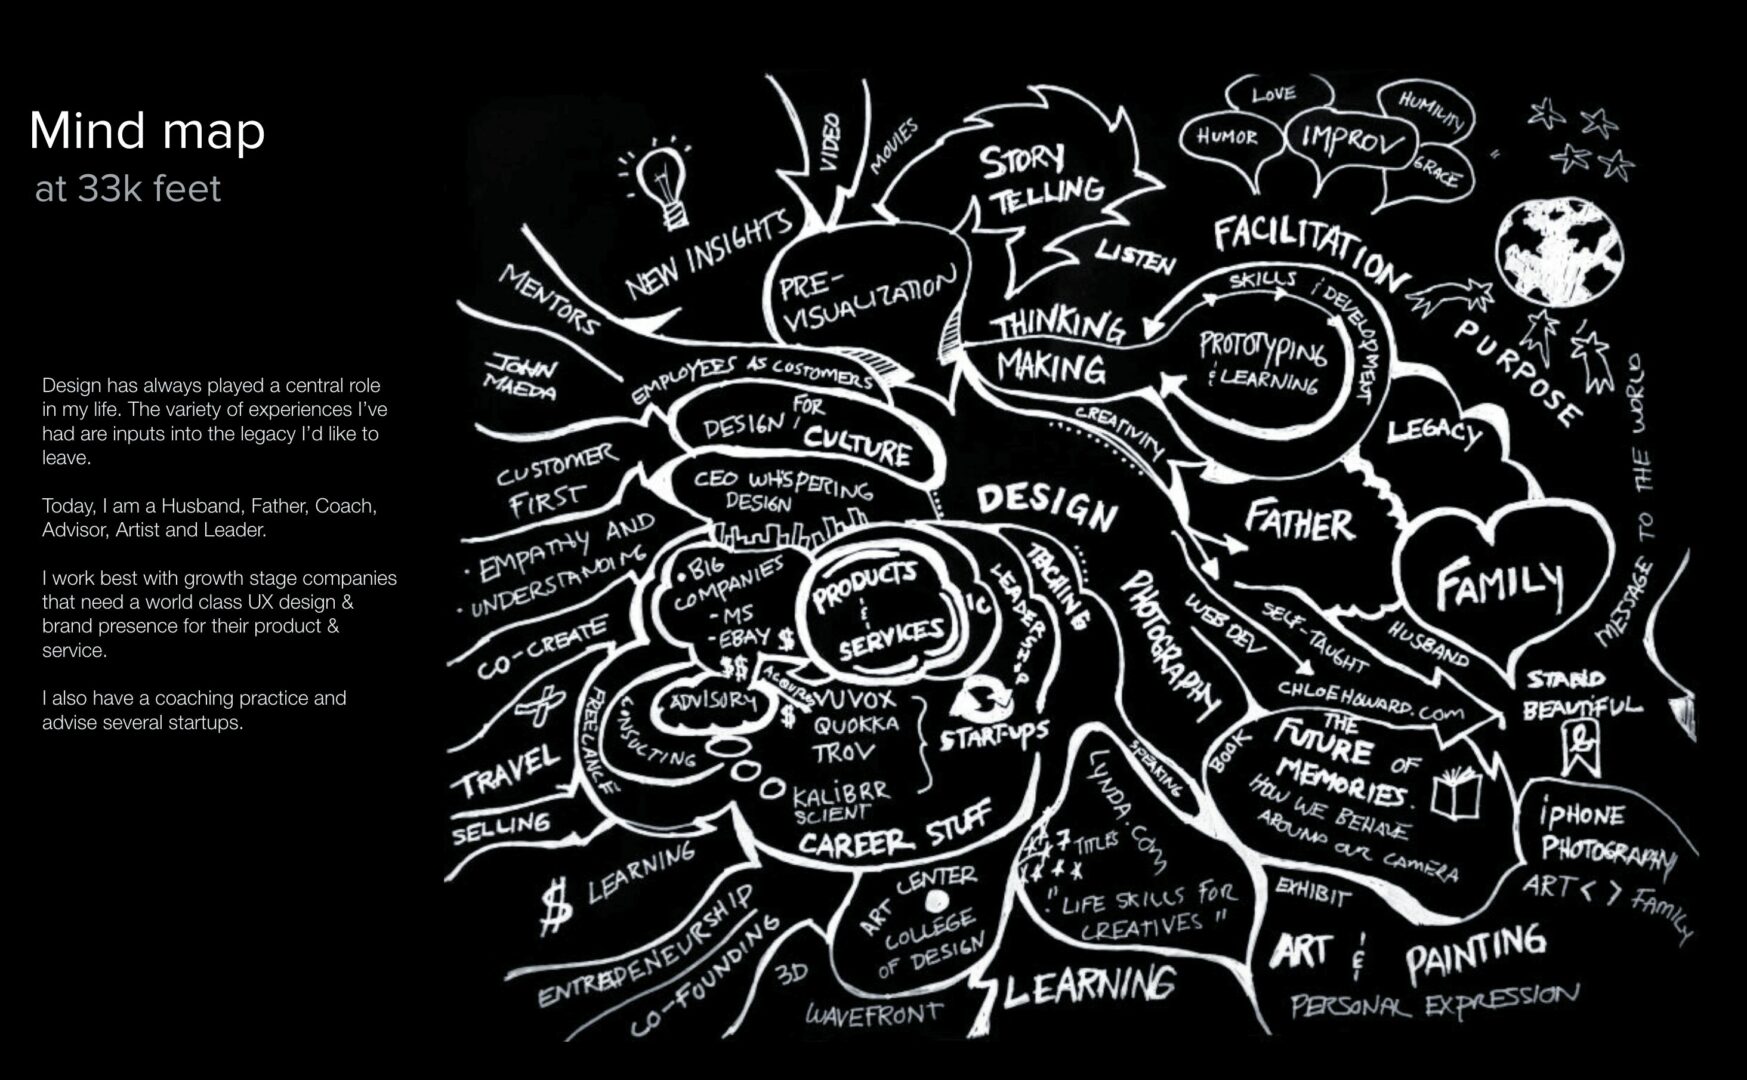 Mind map
at 33k feet
Design has always played a central role
in my life. The variety of experiences I've
had are inputs into the legacy I'd like to
leave.
Today, I am a Husband, Father, Coach,
Advisor, Artist and Leader.
I work best with growth stage companies
that need a world class UX design &
brand presence for their product &
service.
I also have a coaching practice and
advise several startups.
VIDEO
MOVIES
STORY
TELLING
LOVE
HUMILITY
HUMOR
IMPROV
GRACE
NEW INSIGHTS
MENTORS
PRE-
VISUALIZATION
LISTEN
FACILITATION
SKILLS & DEVELOPMENT
PURPOSE
THINKING
MAKING
PROTOTYPING
& LEARNING
JOHN
MAEDA
EMPLOYEES AS CUSTOMERS
DESIGN FOR
CULTURE
CREATIVITY
LEGACY
MESSAGE TO THE WORLD
CUSTOMER
FIRST
CEO WHISPERING
DESIGN
DESIGN
FATHER
FAMILY
• EMPATHY AND
• UNDERSTANDING
• BIG
COMPANIES
- MS
- EBAY $
$$
PRODUCTS
&
SERVICES
IC
LEADERSHIP
TEACHING
PHOTOGRAPHY
WEB DEV
SELF-TAUGHT
HUSBAND
CHLOEHOWARD.COM
STAND
BEAUTIFUL
CO-CREATE
FREELANCE
CONSULTING
ADVISORY
$
VUVOX
QUOKKA
TROV
KALIBRR
SCIENT
START-UPS
CAREER STUFF
TRAVEL
SELLING
$ LEARNING
ENTREPENEURSHIP
CO-FOUNDING
3D
WAVEFRONT
ART CENTER
COLLEGE
OF DESIGN
LYNDA.COM
7 TITLES
"LIFE SKILLS FOR
CREATIVES"
LEARNING
SPEAKING
BOOK
THE
FUTURE OF
MEMORIES.
HOW WE BEHAVE
AROUND OUR CAMERA
EXHIBIT
ART & PAINTING
PERSONAL EXPRESSION
iPHONE
PHOTOGRAPHY
ART < > FAMILY